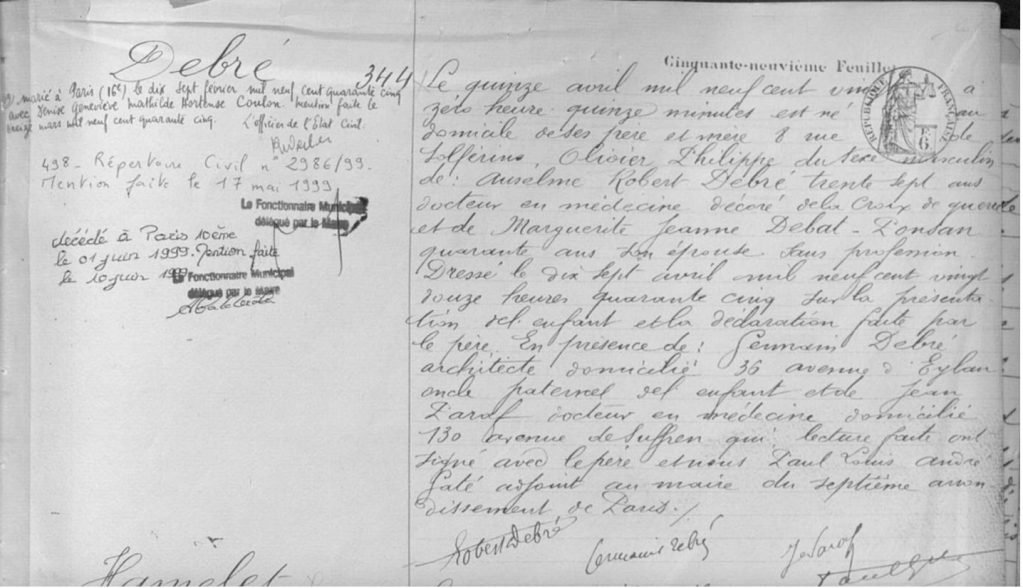 Debré
344
marié à Paris (16e) le dix sept février mil neuf cent quarante cinq
avec Denise Geneviève Mathilde Hortense Coulon. Mention faite le
treize mars mil neuf cent quarante cinq. L'officier de l'Etat Civil.
498 - Répertoire Civil n° 2986/99.
Mention faite le 17 mai 1999
Le Fonctionnaire Municipal
délégué par le Maire
décédé à Paris 10ème
le 01 juin 1999. Mention faite
le 10 juin
Le Fonctionnaire Municipal
délégué par le Maire
Hamelet
Cinquante-neuvième Feuillet
RÉPUBLIQUE FRANÇAISE
E
6.
Le quinze avril mil neuf cent vingt à
zéro heure quinze minutes est né au
domicile de ses père et mère 8 rue de
Solférino, Olivier Philippe du sexe masculin
de : Anselme Robert Debré trente sept ans
docteur en médecine décoré de la Croix de guerre
et de Marguerite Jeanne Debat-Ponsan
quarante ans son épouse sans profession.
Dressé le dix sept avril mil neuf cent vingt
douze heures quarante cinq sur la présenta
tion de l enfant et la déclaration faite par
le père. En présence de : Germain Debré
architecte domicilié 36 avenue d'Eylau
oncle paternel de l enfant et de Jean
Daraf docteur en médecine domicilié
130 avenue de Suffren qui lecture faite ont
signé avec le père et nous Paul Louis André
Gaté adjoint au maire du septième arron
dissement de Paris ./
Robert Debré
Germain Debré